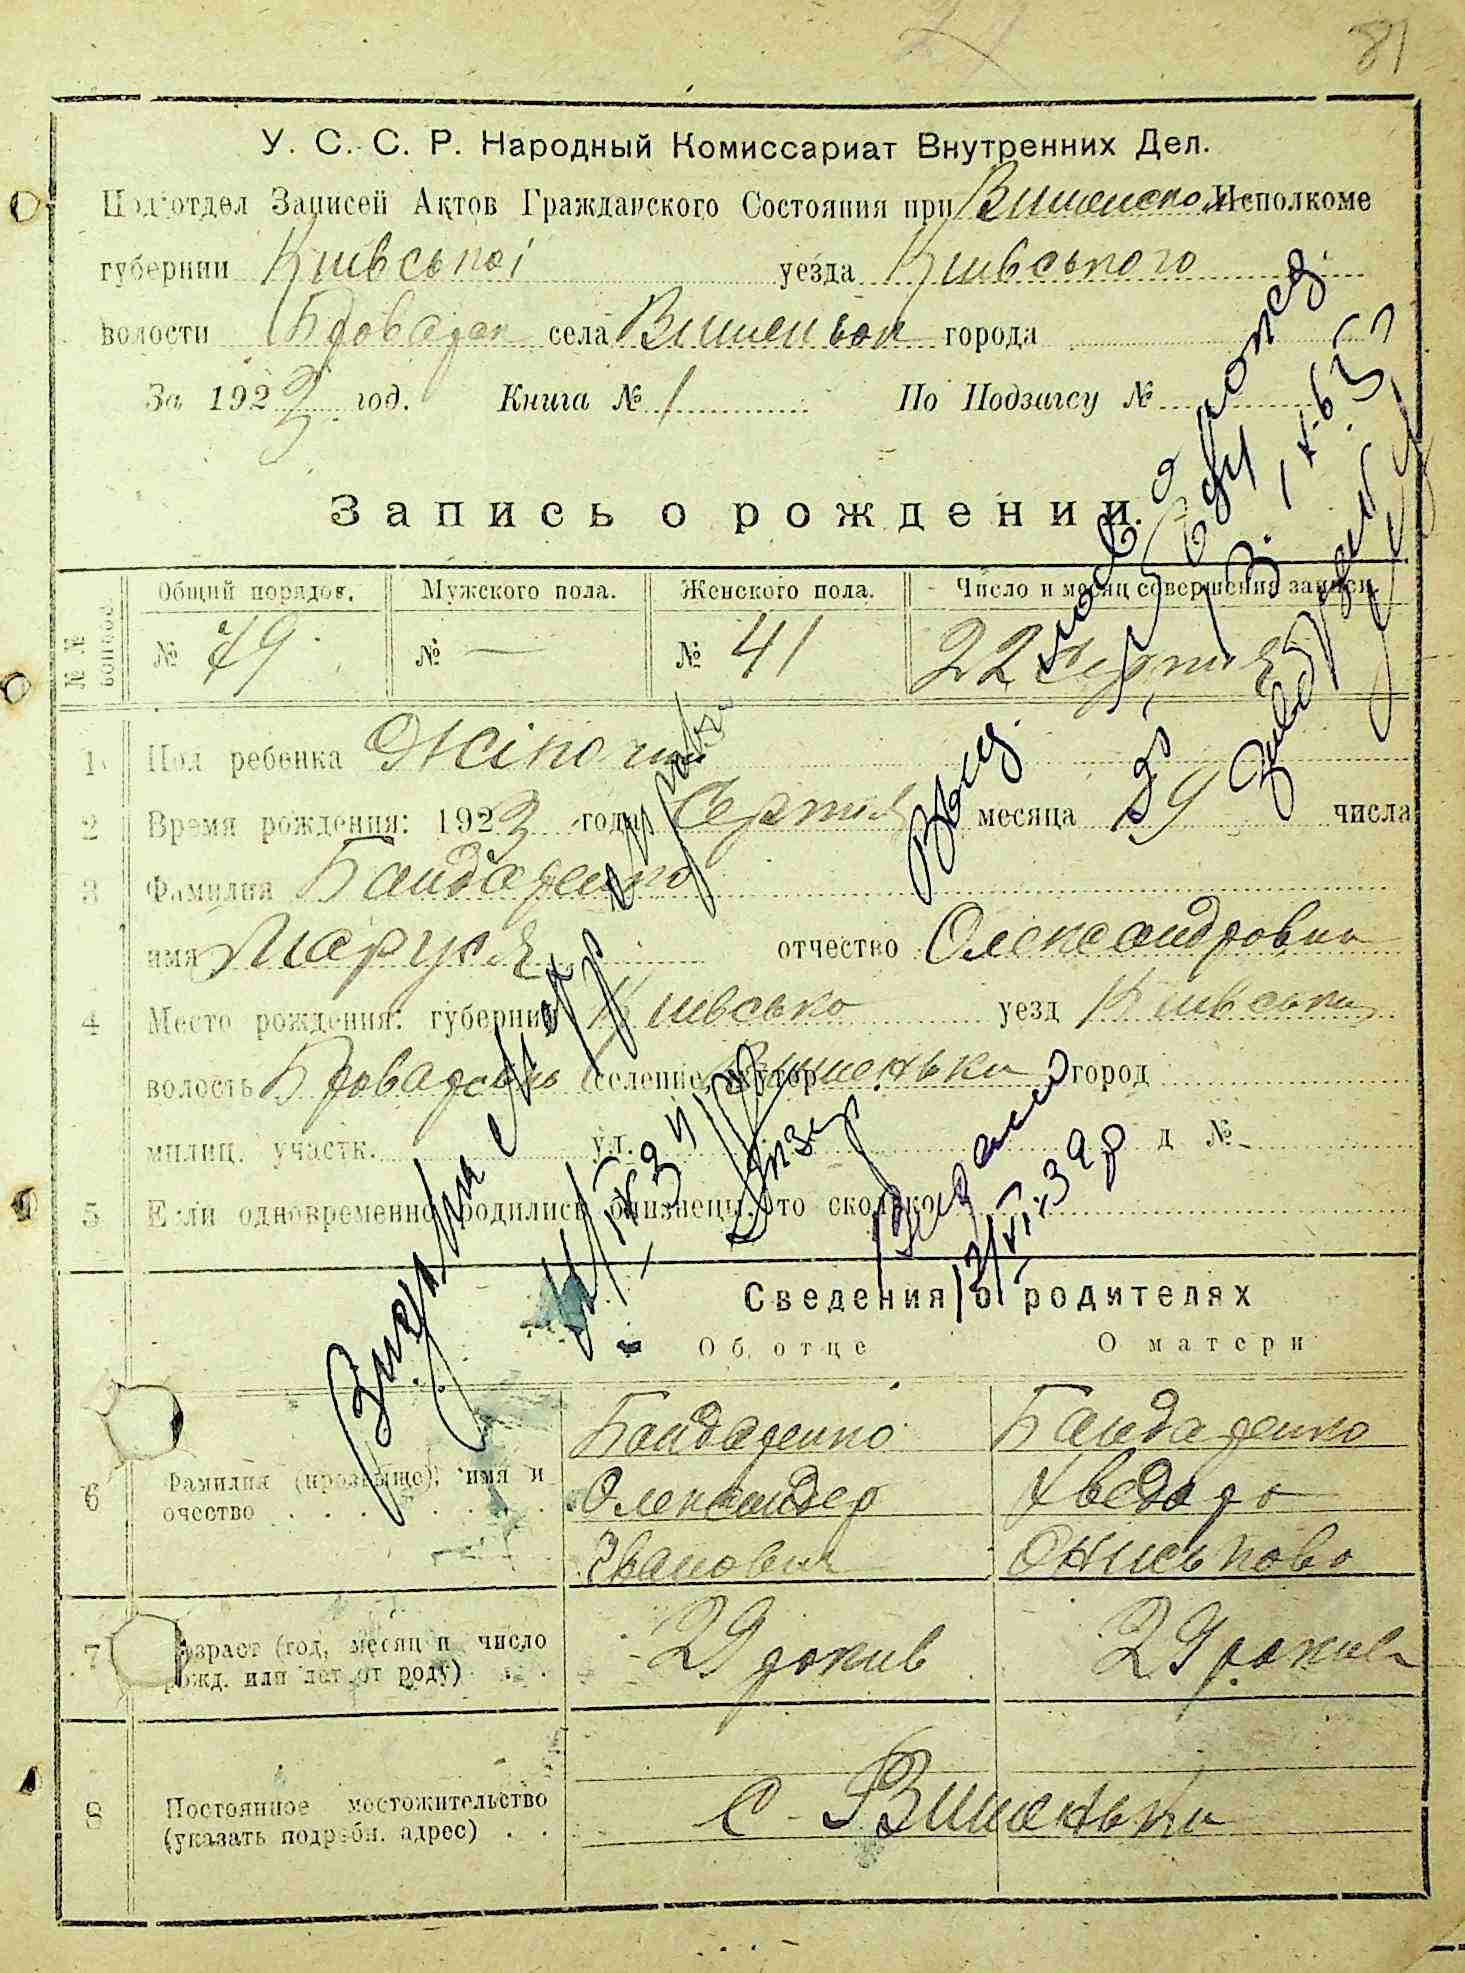 81
У. С. С. Р. Народный Комиссариат Внутренних Дел.
Под'отдел Записей Актов Гражданского Состояния при Вишенско Исполкоме
губернии Київської уезда Київського
волости Бровар села Вишеньок города
За 1923 год. Книга № 1 По Подзагсу №
Запись о рождении.
№№ вопросов Общий порядов. Мужского пола. Женского пола. Число и месяц совершения записи
№ 79 № — № 41 22 Серпня
1 Пол ребенка Жіноча
2 Время рождения: 1923 года Серпня месяца 19 числа
3 Фамилия Бандаренко
имя Маруся отчество Олександровна
4 Место рождения: губерния Київсько уезд Київськи
волость Броварська селение, хутор Вишеньки город
милиц. участк. ул. д №
5 Если одновременно родились близнецы, то сколько
Сведения о родителях
Об отце О матери
6 Фамилия (прозвище), имя и очество
Бандаренко Бандаренко
Олександер Хведора
Іванович Ониськово
7 Возраст (год, месяц и число рожд. или лет от роду)
29 років 29 років
8 Постоянное местожительство (указать подробн. адрес)
с. Вишеньки